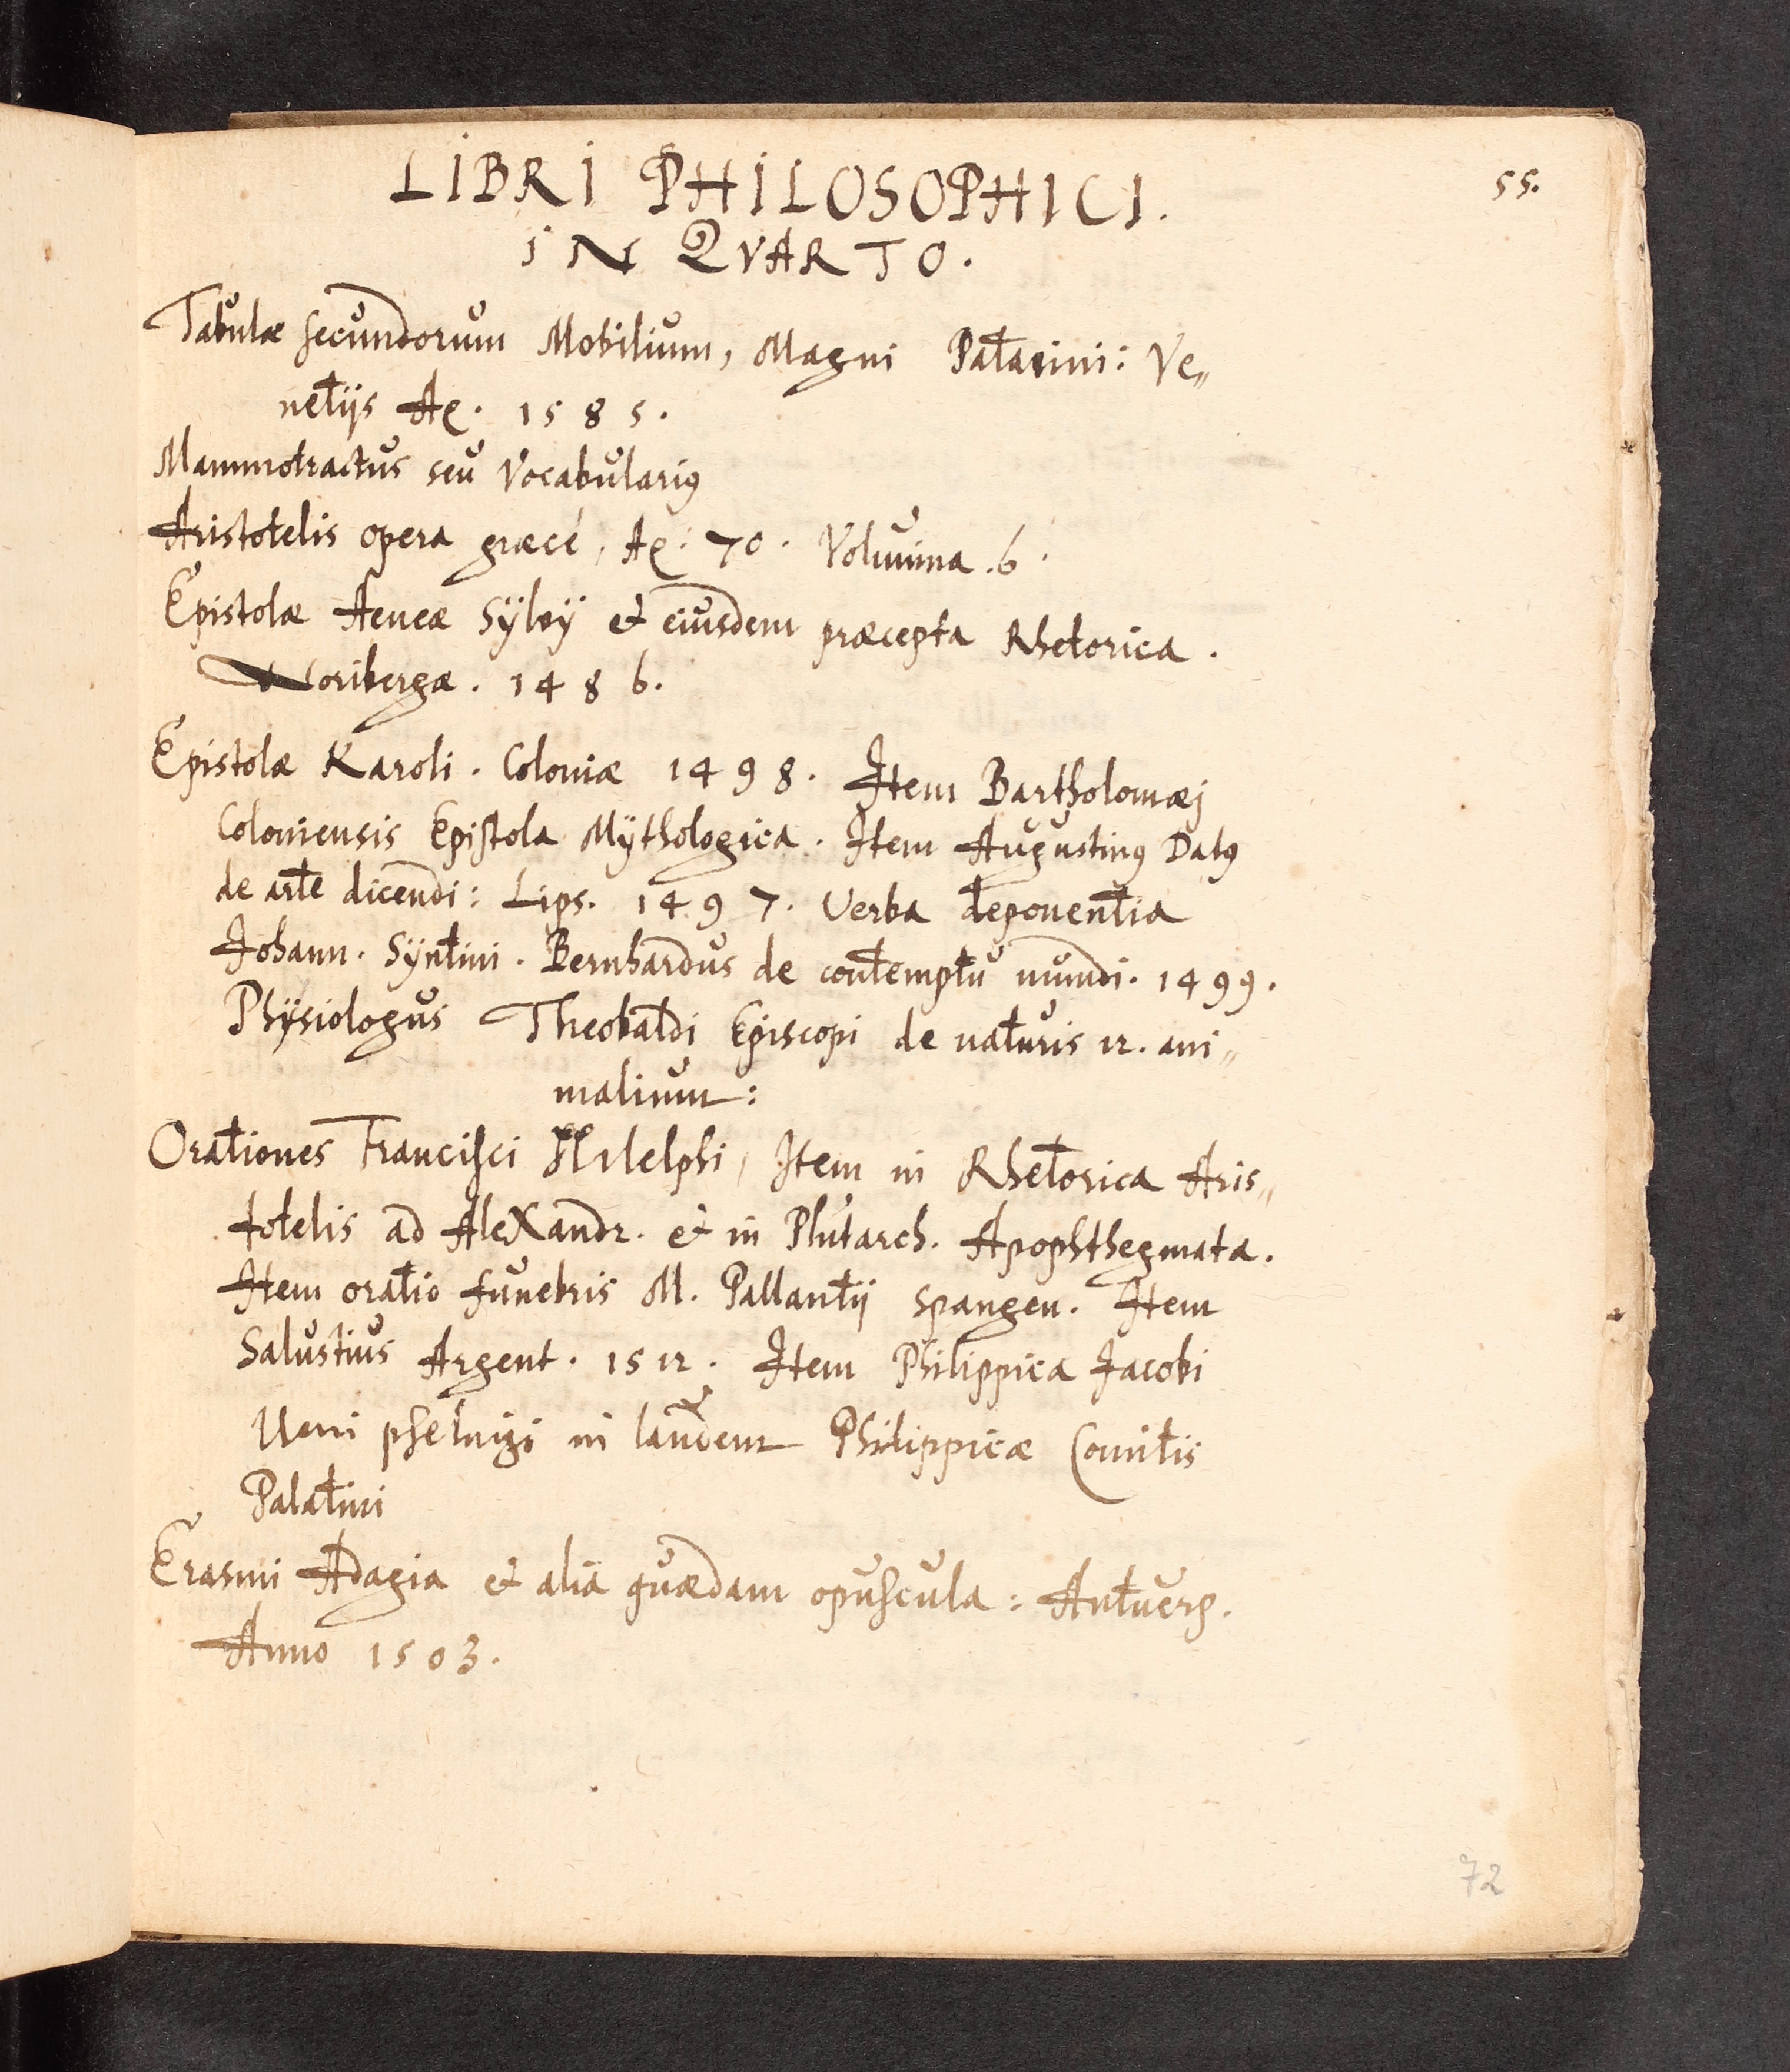 LIBRI PHILOSOPHICI. 55.
IN QVARTO.
Tabulæ secundorum Mobilium, Magni Patavini: Ve„
netijs Aº. 1585.
Mammotractus seu Vocabularius
Aristotelis opera græcé, Aº. 70. Volumina .6.
Epistolæ Aeneæ Sÿlvÿ et eiusdem præcepta Rhetorica.
Noribergæ. 1486.
Epistolæ Karoli. Coloniæ 1498. Item Bartholomæj
Coloniensis Epistola Mÿthologica. Item Augustinus Datus
de arte dicendi: Lips. 1497. Verba deponentia
Johann. Sÿntini. Bernhardus de contemptu mundi. 1499.
Phÿsiologus Theobaldi Episcopi de naturis 12. ani„
malium:
Orationes Francisci Philelphi, Item in Rhetorica Aris„
totelis ad AleXandr. et in Plutarch. Apophthegmata.
Item oratio funebris M. Pallantij Spangen. Item
Salustius Argent. 1512. Item Philippica Jacobi
in laudem Philippicæ Comitis
Palatini
Erasmi Adagia et alia quædam opuscula: Antuerp.
Anno 1503.
72